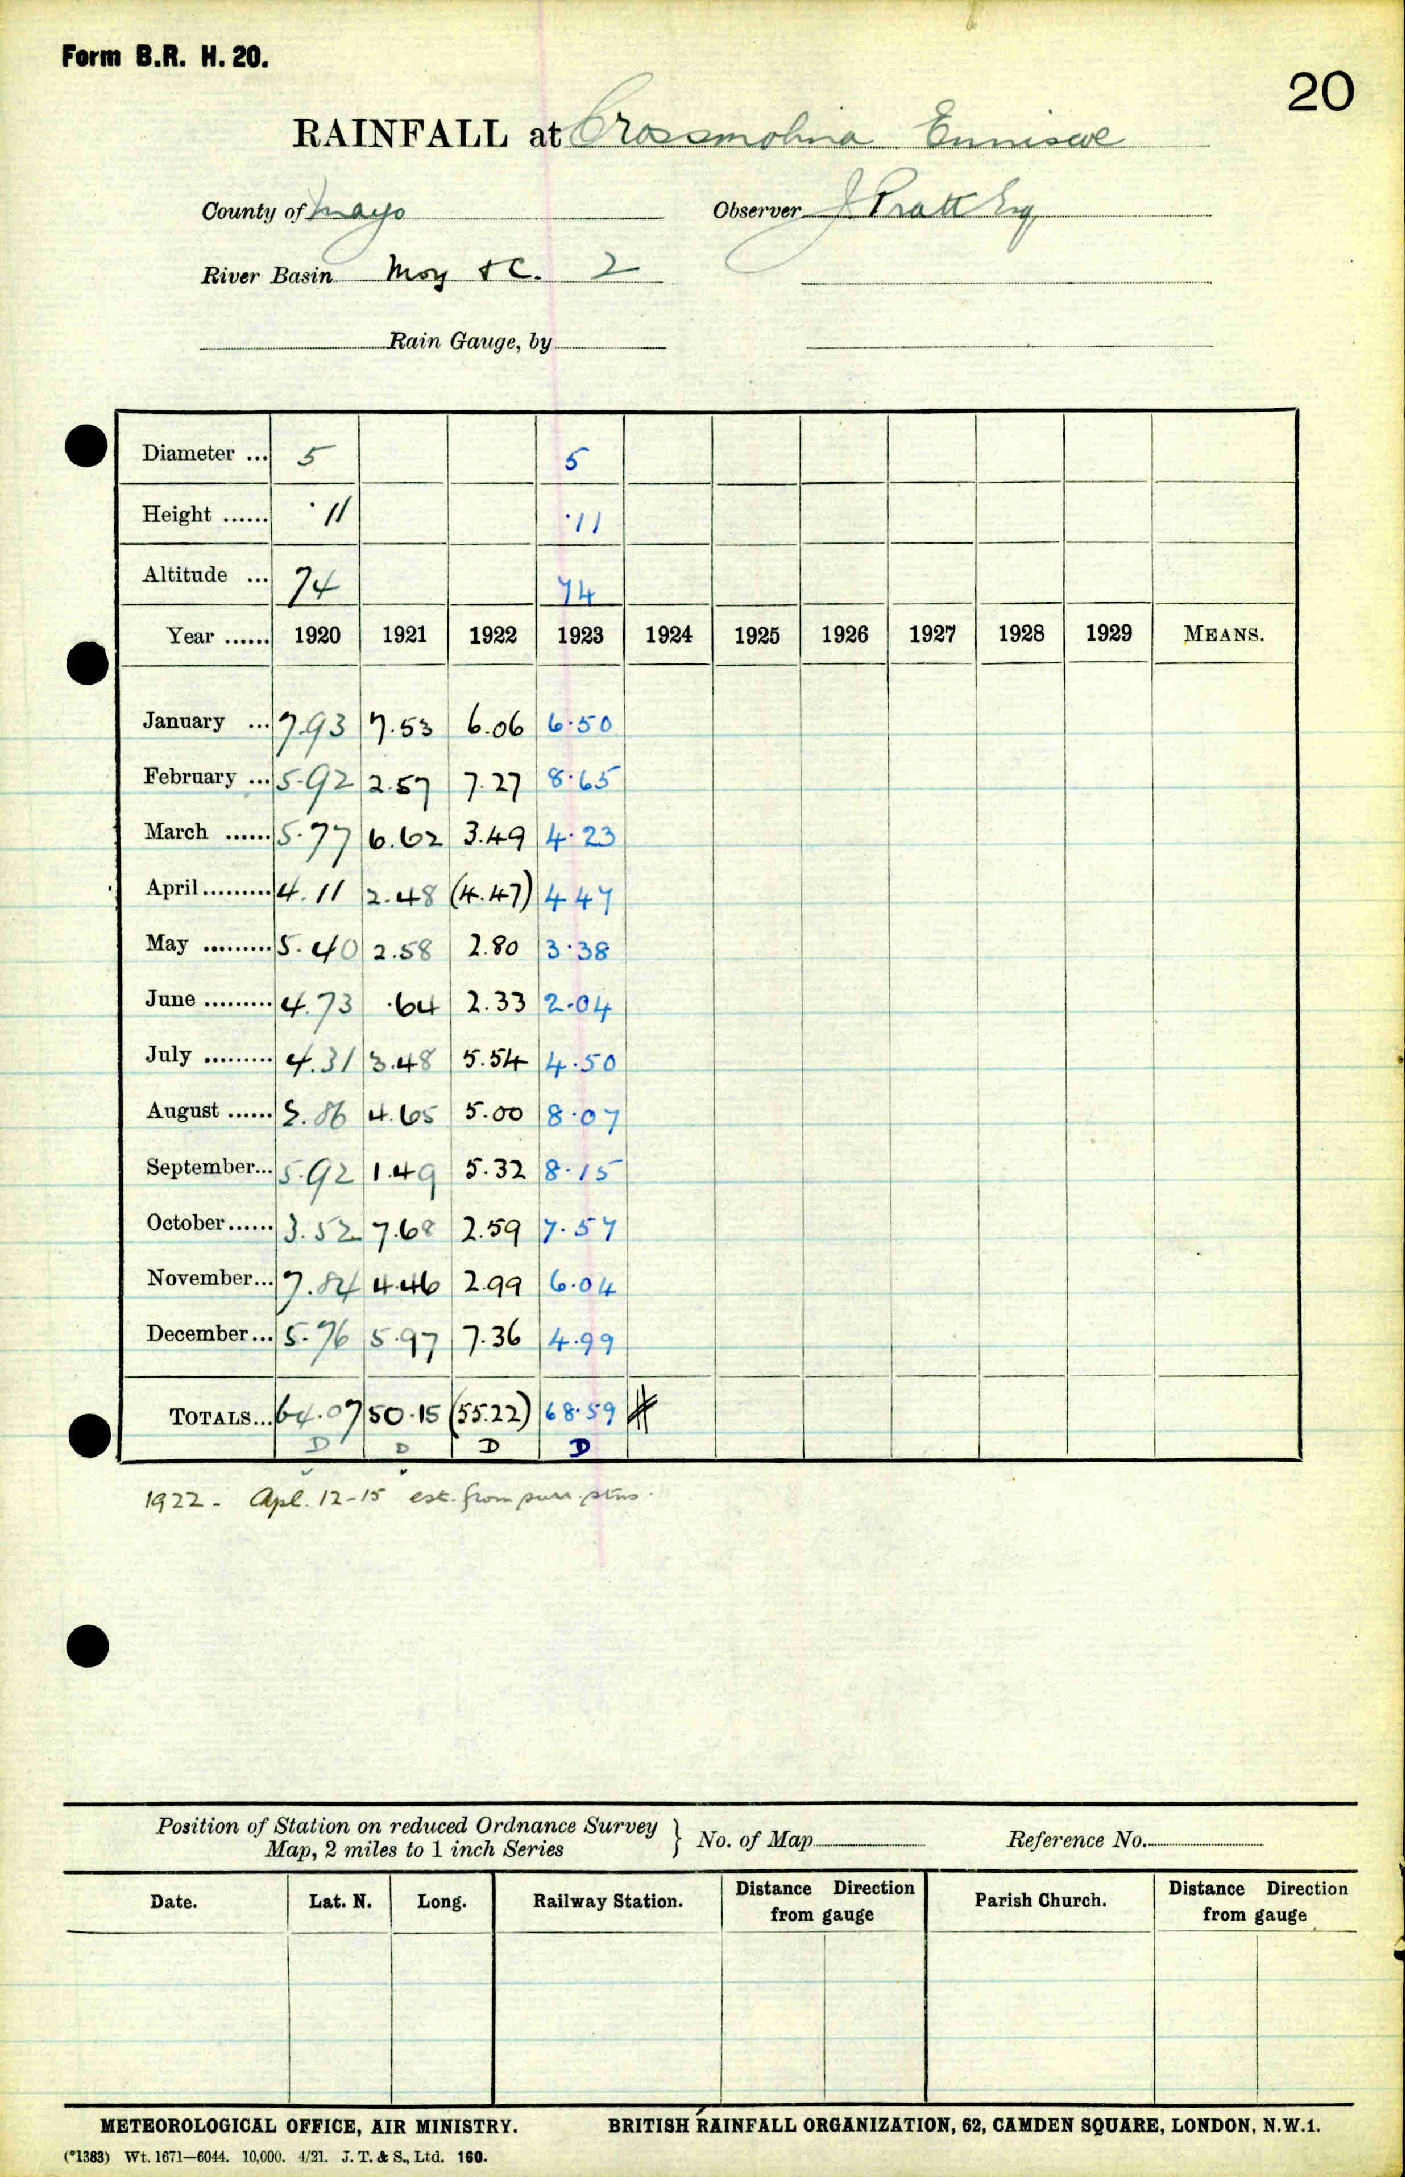 Form B.R. H. 20.
20
RAINFALL at Crossmolina Enniscoe
County of Mayo Observer J Pratt Esq
River Basin Moy &C. 2
Rain Gauge, by
Diameter ... 5 5
Height ...... ·11 ·11
Altitude ... 74 74
Year ...... 1920 1921 1922 1923 1924 1925 1926 1927 1928 1929 MEANS.
January ... 7.93 7.53 6.06 6.50
February ... 5.92 2.57 7.27 8.65
March ...... 5.77 6.62 3.49 4.23
April ......... 4.11 2.48 (4.47) 4 47
May ......... 5.40 2.58 2.80 3.38
June ......... 4.73 .64 2.33 2.04
July ......... 4.31 3.48 5.54 4.50
August ...... 2.86 4.65 5.00 8.07
September... 5.92 1.49 5.32 8.15
October...... 3.52 7.68 2.59 7.57
November... 7.84 4.46 2.99 6.04
December... 5.76 5.97 7.36 4.99
TOTALS... 64.07 50.15 (55.22) 68.59
D D D D
1922 - Apl. 12-15 est. from surr. stns.
Position of Station on reduced Ordnance Survey
Map, 2 miles to 1 inch Series } No. of Map Reference No.
Date. Lat. N. Long. Railway Station. Distance Direction from gauge Parish Church. Distance Direction from gauge
METEOROLOGICAL OFFICE, AIR MINISTRY. BRITISH RAINFALL ORGANIZATION, 62, CAMDEN SQUARE, LONDON, N.W.1.
(*1383) Wt. 1671—6044. 10,000. 4/21. J. T. & S., Ltd. 160.